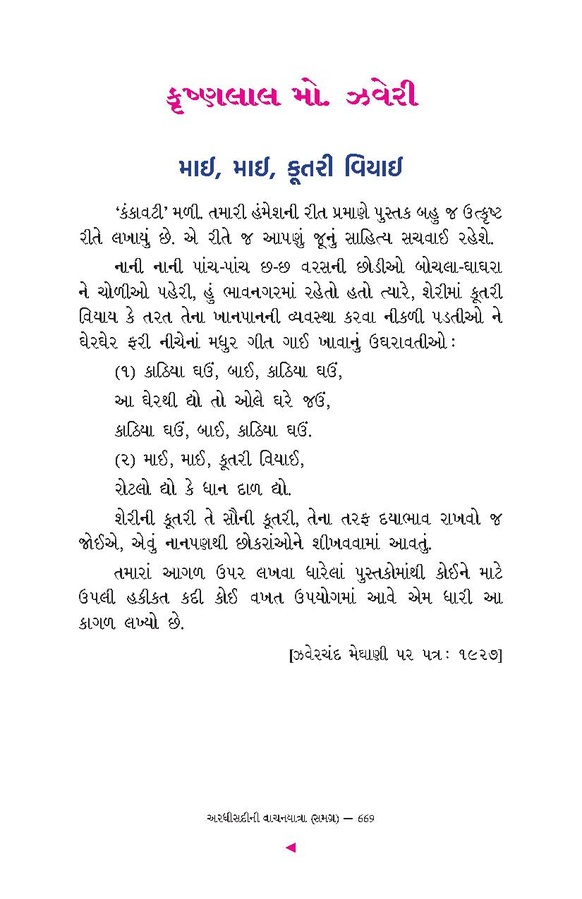 કૃષ્ણલાલ મો. ઝવેરી
માઈ, માઈ, કૂતરી વિયાઈ
‘કંકાવટી’ મળી. તમારી હંમેશની રીત પ્રમાણે પુસ્તક બહુ જ ઉત્કૃષ્ટ
રીતે લખાયું છે. એ રીતે જ આપણું જૂનું સાહિત્ય સચવાઈ રહેશે.
નાની નાની પાંચ-પાંચ છ-છ વરસની છોડીઓ બોચલા-ઘાઘરા
ને ચોળીઓ પહેરી, હું ભાવનગરમાં રહેતો હતો ત્યારે, શેરીમાં કૂતરી
વિયાય કે તરત તેના ખાનપાનની વ્યવસ્થા કરવા નીકળી પડતીઓ ને
ઘેરઘેર ફરી નીચેનાં મધુર ગીત ગાઈ ખાવાનું ઉઘરાવતીઓ :
(૧) કાઠિયા ઘઉં, બાઈ, કાઠિયા ઘઉં,
આ ઘેરથી દ્યો તો ઓલે ઘરે જઉં,
કાઠિયા ઘઉં, બાઈ, કાઠિયા ઘઉં.
(૨) માઈ, માઈ, કૂતરી વિયાઈ,
રોટલો દ્યો કે ધાન દાળ દ્યો.
શેરીની કૂતરી તે સૌની કૂતરી, તેના તરફ દયાભાવ રાખવો જ
જોઈએ, એવું નાનપણથી છોકરાંઓને શીખવવામાં આવતું.
તમારાં આગળ ઉપર લખવા ધારેલાં પુસ્તકોમાંથી કોઈને માટે
ઉપલી હકીકત કદી કોઈ વખત ઉપયોગમાં આવે એમ ધારી આ
કાગળ લખ્યો છે.
[ઝવેરચંદ મેઘાણી પર પત્ર : ૧૯૨૭]
અરધીસદીની વાચનયાત્રા (સમગ્ર) — 669